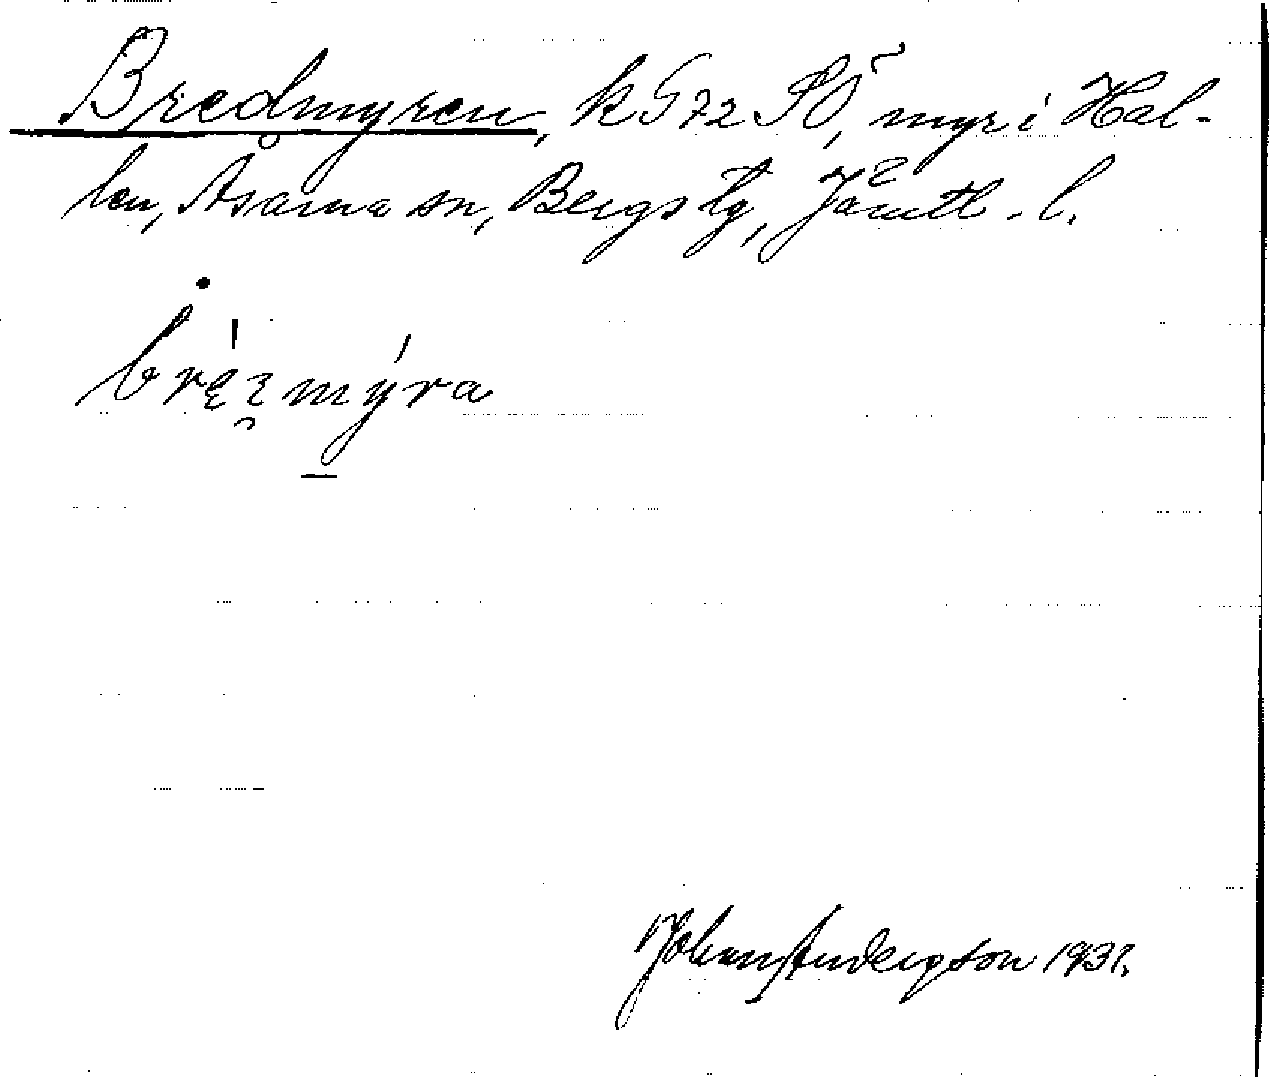 Bredmyren, k G 72 SÖ, myr i Hal-
len, Åsarna sn, Bergs tg, Jämtl. l.
Johan Anderson 1931.